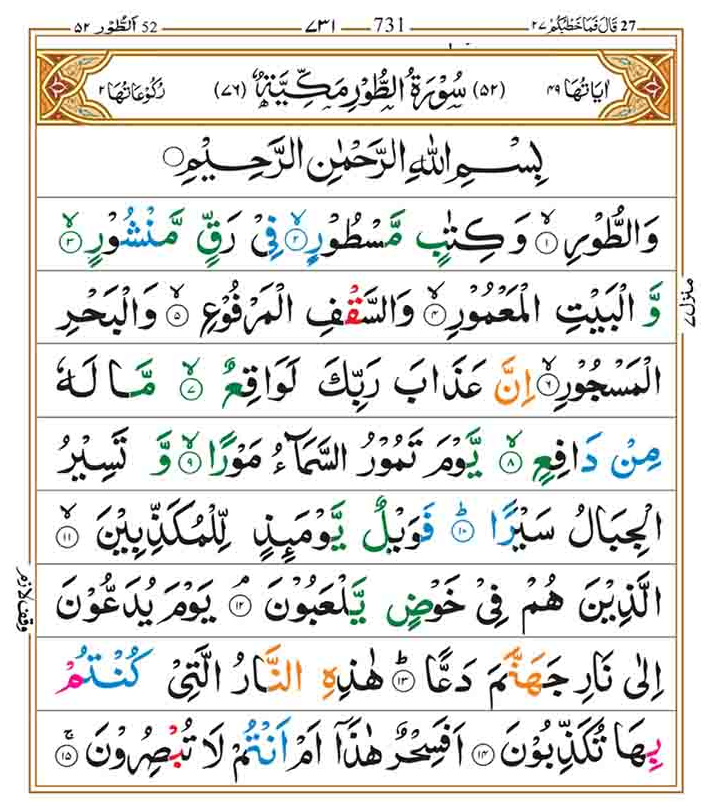 27 قَالَ فَمَا خَطْبُكُمْ ٢٧ ٧٣١ 731 52 اَلطُّوْر ٥٢
اٰيَاتُهَا ٤٩ (٥٢) سُوْرَةُ الطُّوْرِ مَكِّيَّةٌ (٧٦) رُكُوْعَاتُهَا ٢
بِسْمِ اللّٰهِ الرَّحْمٰنِ الرَّحِيْمِ
وَالطُّوْرِۙ ١ وَ كِتٰبٍ مَّسْطُوْرٍۙ ٢ فِیْ رَقٍّ مَّنْشُوْرٍۙ ٣
وَّ الْبَيْتِ الْمَعْمُوْرِۙ ٤ وَالسَّقْفِ الْمَرْفُوْعِۙ ٥ وَالْبَحْرِ
الْمَسْجُوْرِۙ ٦ اِنَّ عَذَابَ رَبِّكَ لَوَاقِعٌۙ ٧ مَّا لَهٗ
مِنْ دَافِعٍۙ ٨ يَّوْمَ تَمُوْرُ السَّمَآءُ مَوْرًاۙ ٩ وَّ تَسِيْرُ
الْجِبَالُ سَيْرًاؕ ١٠ فَوَيْلٌ يَّوْمَئِذٍ لِّلْمُكَذِّبِيْنَۙ ١١
الَّذِيْنَ هُمْ فِیْ خَوْضٍ يَّلْعَبُوْنَۘ ١٢ يَوْمَ يُدَعُّوْنَ
اِلٰی نَارِ جَهَنَّمَ دَعًّاؕ ١٣ هٰذِهِ النَّارُ الَّتِیْ كُنْتُمْ
بِهَا تُكَذِّبُوْنَ ١٤ اَفَسِحْرٌ هٰذَاۤ اَمْ اَنْتُمْ لَا تُبْصِرُوْنَۚ ١٥
منزل ٧
وقف لازم